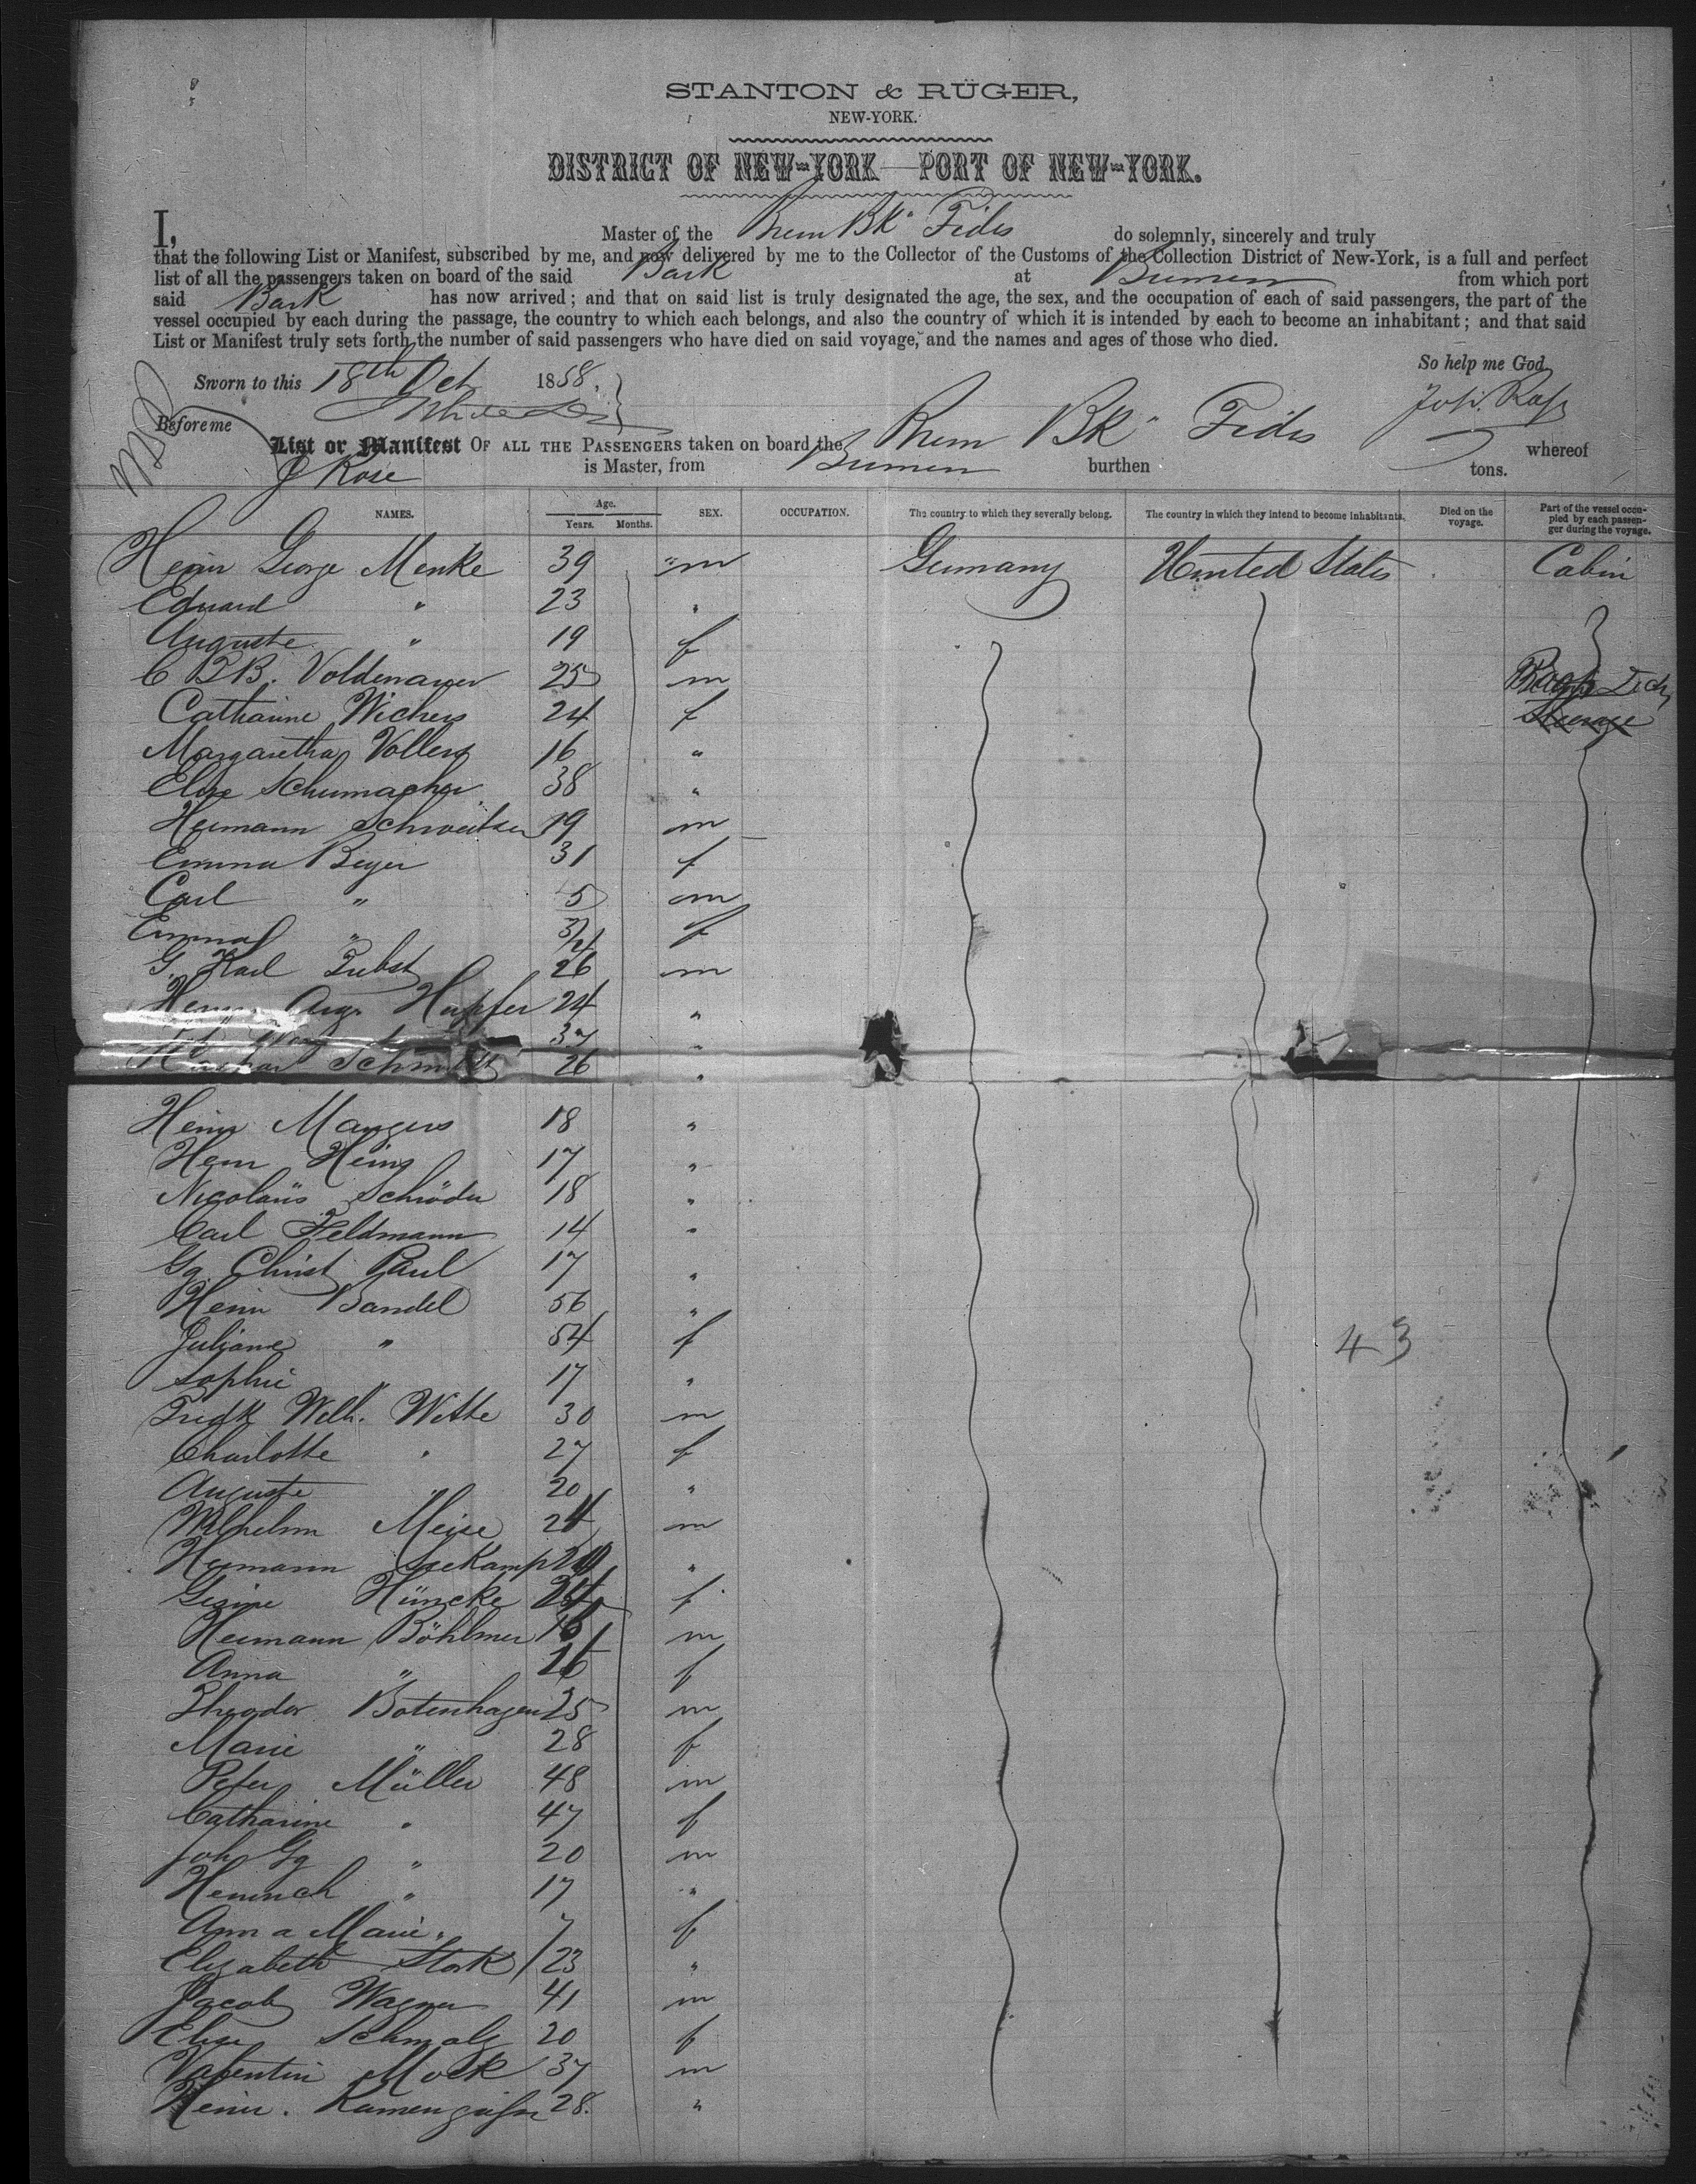 STANTON & RÜGER,
NEW-YORK.
DISTRICT OF NEW-YORK—PORT OF NEW-YORK.
I, Master of the Brem Bk Fides do solemnly, sincerely and truly
that the following List or Manifest, subscribed by me, and now delivered by me to the Collector of the Customs of the Collection District of New-York, is a full and perfect
list of all the passengers taken on board of the said Bark at Bremen from which port
said Bark has now arrived; and that on said list is truly designated the age, the sex, and the occupation of each of said passengers, the part of the
vessel occupied by each during the passage, the country to which each belongs, and also the country of which it is intended by each to become an inhabitant; and that said
List or Manifest truly sets forth the number of said passengers who have died on said voyage, and the names and ages of those who died.
So help me God
Sworn to this 18th Oct 1858,
Before me
List or Manifest OF ALL THE PASSENGERS taken on board the Brem Bk Fides whereof
J Rose is Master, from Bremen burthen tons.
NAMES. Age. Years. Months. SEX. OCCUPATION. The country to which they severally belong. The country in which they intend to become inhabitants. Died on the voyage. Part of the vessel occupied by each passenger during the voyage.
Heinr George Menke 39 m Germany United States Cabin
Eduard " 23 "
Auguste " 19 f
C B B. Voldenauer 25 m
Catharine Wichers 24 f Steerage
Margaretha Vollers 16 "
Elise Schumacher 38 "
Hermann Schweitzer 19 m
Emma Beyer 31 f
Carl " 5 m
Emma " 3/4 f
G. Karl 26 m
Aug. Hupfer 24 "
37 "
Schmidt 26 "
Heinr Mangers 18 "
Herm Heins 17 "
Nicolaüs Schröder 18 "
Carl Feldmann 14 "
Gg. Christ Paul 17 "
Heinr Bandel 56 "
Juliane " 54 f
43
Sophie " 17 "
Friedk Wilh. Witte 30 m
Charlotte " 27 f
Auguste " 20 "
Wilhelm Meise 24 m
Hermann Seekamp "
Gesine Hüncke f
Hermann Böhlmer m
Anna " f
Theodor Botenhagen 25 m
Marie " 28 f
Peter Müller 48 m
Catharine " 47 f
Joh Gg " 20 m
Heinrich " 17 "
Anna Marie " 7 f
Elisabeth Stork 23 "
Jacob Wagner 41 m
Elise Schmalz 20 f
Valentin Mock 37 m
Heinr. 28. "